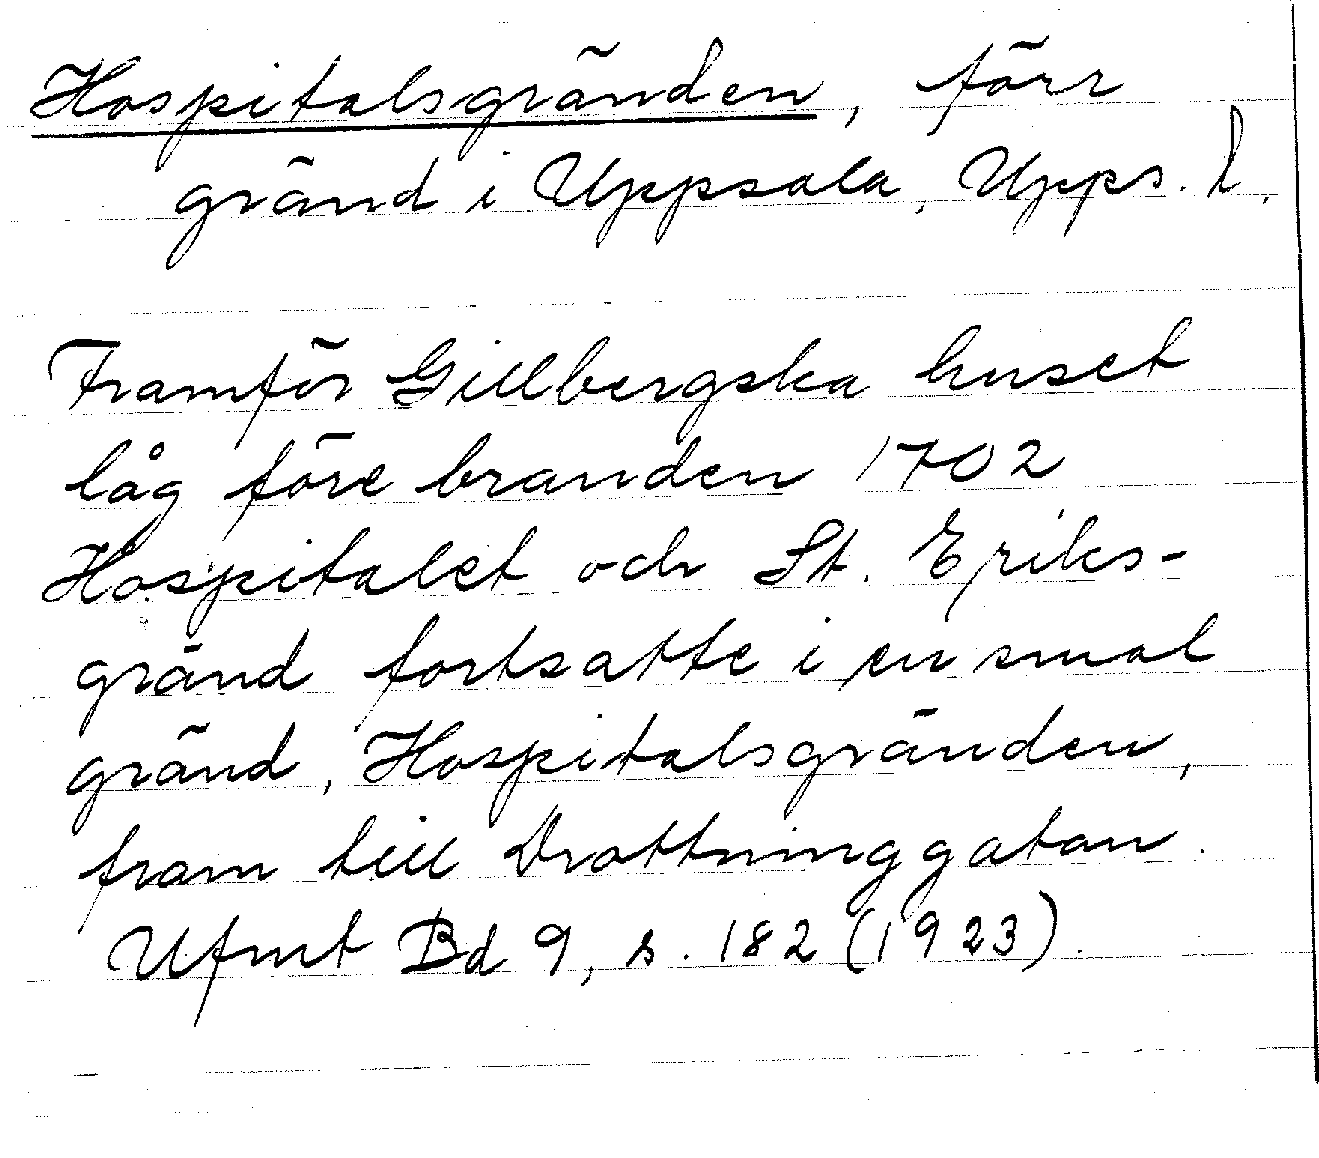 Hospitalsgränden, förr
gränd i Uppsala, Upps. l.
Framför Gillbergska huset
låg före branden 1702
Hospitalet och St. Eriks-
gränd fortsatte i en smal
gränd, Hospitalsgränden,
fram till Drottninggatan.
Ufmt Bd 9, s. 182 (1923).